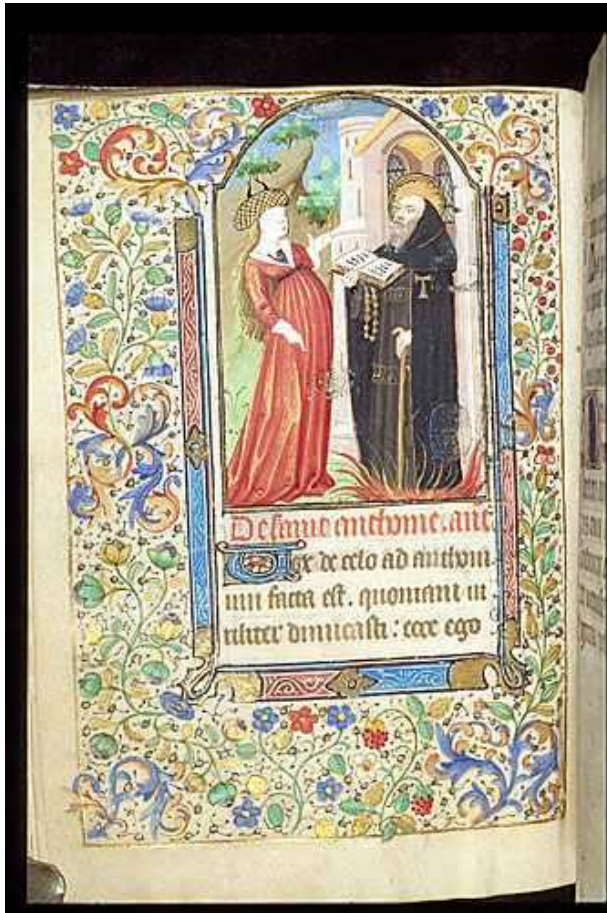 De saint anthoine. ant.
Vox de celo ad anthoni
um facta est. quoniam ui
riliter dimicasti: ecce ego